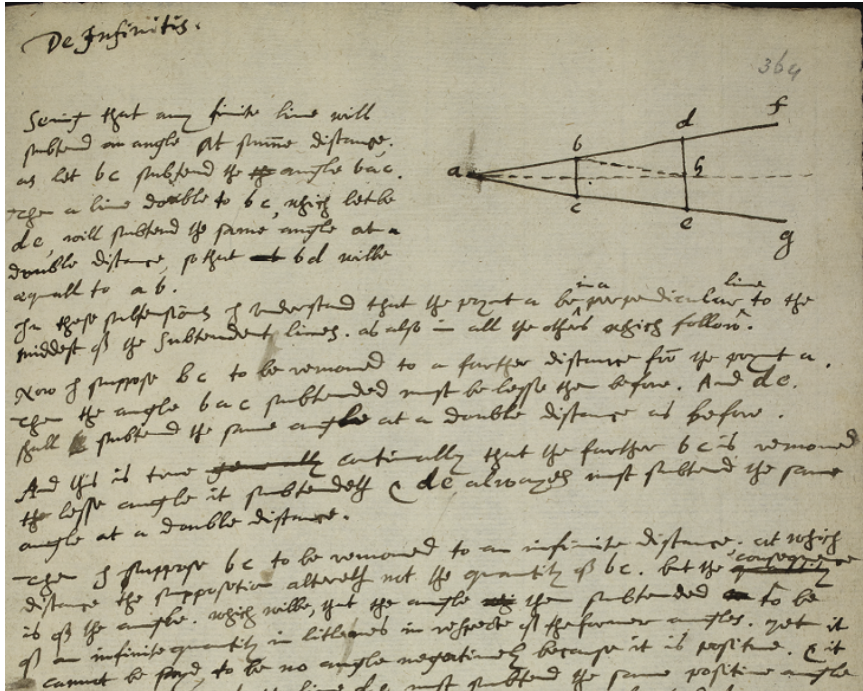 De Infinitis.
364
Seing that any finite line will
subtend an angle at summe distance.
as let bc subtend the angle bac.
Then a line double to bc, which let be
de, will subtend the same angle at a
double distance, so that bd wilbe
æquall to ab.
In these subtensions I understand that the poynt a be in a perpendicular line to the
middest of the subtendent lines. as also in all the others which follow.
Now I suppose bc to be removed to a farther distance frō the poynt a.
Then the angle bac subtended must be lesse then before. And de.
shall subtend the same angle at a double distance as before.
And this is true generally continually that the farther bc is removed
the lesse angle it subtendeth & de alwayes must subtend the same
angle at a double distance.
Then I suppose bc to be removed to an infinite distance. at which
distance the supposition altereth not the quantity of bc. but the quantity consequence
is of the angle. which wilbe, that the angle then subtended to be
of an infinite quantity in litlenes in respecte of the former angles. yet it
cannot be sayd, to be no angle negatively because it is positive. & it
must subtend the same positive angle
a
b
c
d
e
f
g
h